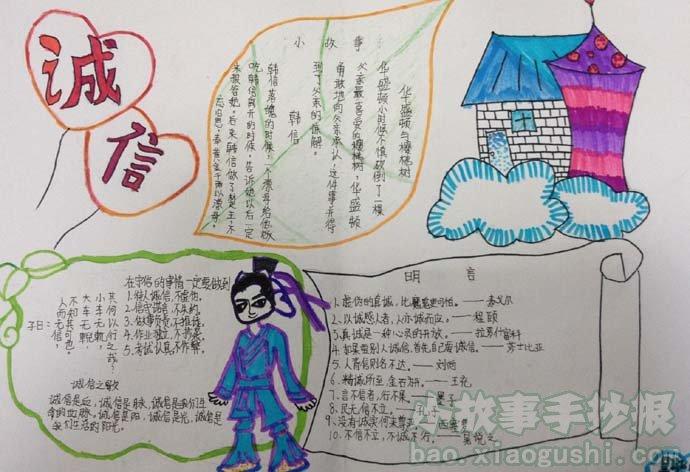 诚信
小故事
华盛顿与樱桃树
华盛顿小时候不慎砍倒了一棵
父亲最喜爱的樱桃树，华盛顿
勇敢地向父亲承认，这件事并得
到了父亲的谅解。
韩信
韩信落魄的时候，一个漂母给他饭
吃，韩信离开的时候，告诉她以后一定
来报答她。后来韩信做了楚王，不
在守信的事情一定要做到
1.待人诚信，不虚伪。
2.信守诺言，不失约。
3.做事负责，不推诿。
4.作业独立，不抄袭。
5.考试认真，不作弊。
子曰：
人而无信，
不知其可也
大车无輗，
小车无軏，
其何以行之哉？
诚信之歌
诚信是血，诚信是脉，诚信是我们生
命的血脉。诚信是阳，诚信是光，诚信是
我们生活的阳光。
明言
1.虚伪的真诚，比魔鬼更可怕。——泰戈尔
2.以诚感人者，人亦诚而应。——程颐
3.真诚是一种心灵的开放。——拉罗什富科
4.如果要别人诚信，首先自己要诚信。——莎士比亚
5.人背信则名不达。——刘向
6.精诚所至，金石为开。——王充
7.言不信者，行不果。——墨子
8.民无信不立。——孔
9.没有诚实何来尊
10.不信不立，不诚不行。——晁说之
小故事手抄报
bao.xiaogushi.com